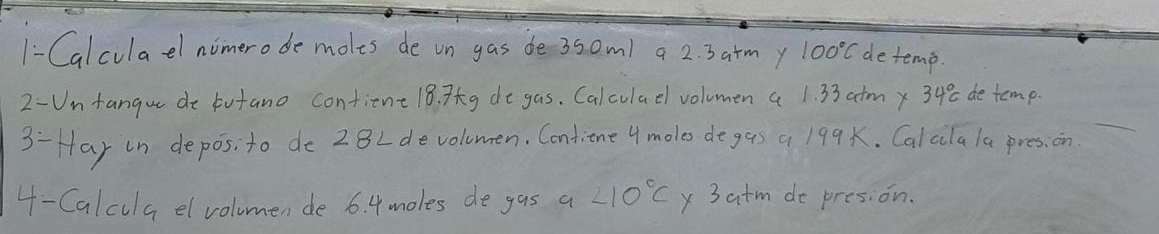 1-Calcula el número de moles de un gas de 350ml a 2.3atm y 100°C de temp.
2-Un tanque de butano contiene 18.7kg de gas. Calcula el volumen a 1.33 atm y 34°c de temp.
3-Hay un depósito de 28L de volumen. Contiene 4 moles de gas a 199K. Calcula la presión.
4-Calcula el volumen de 6.4 moles de gas a 210°C y 3 atm de presión.